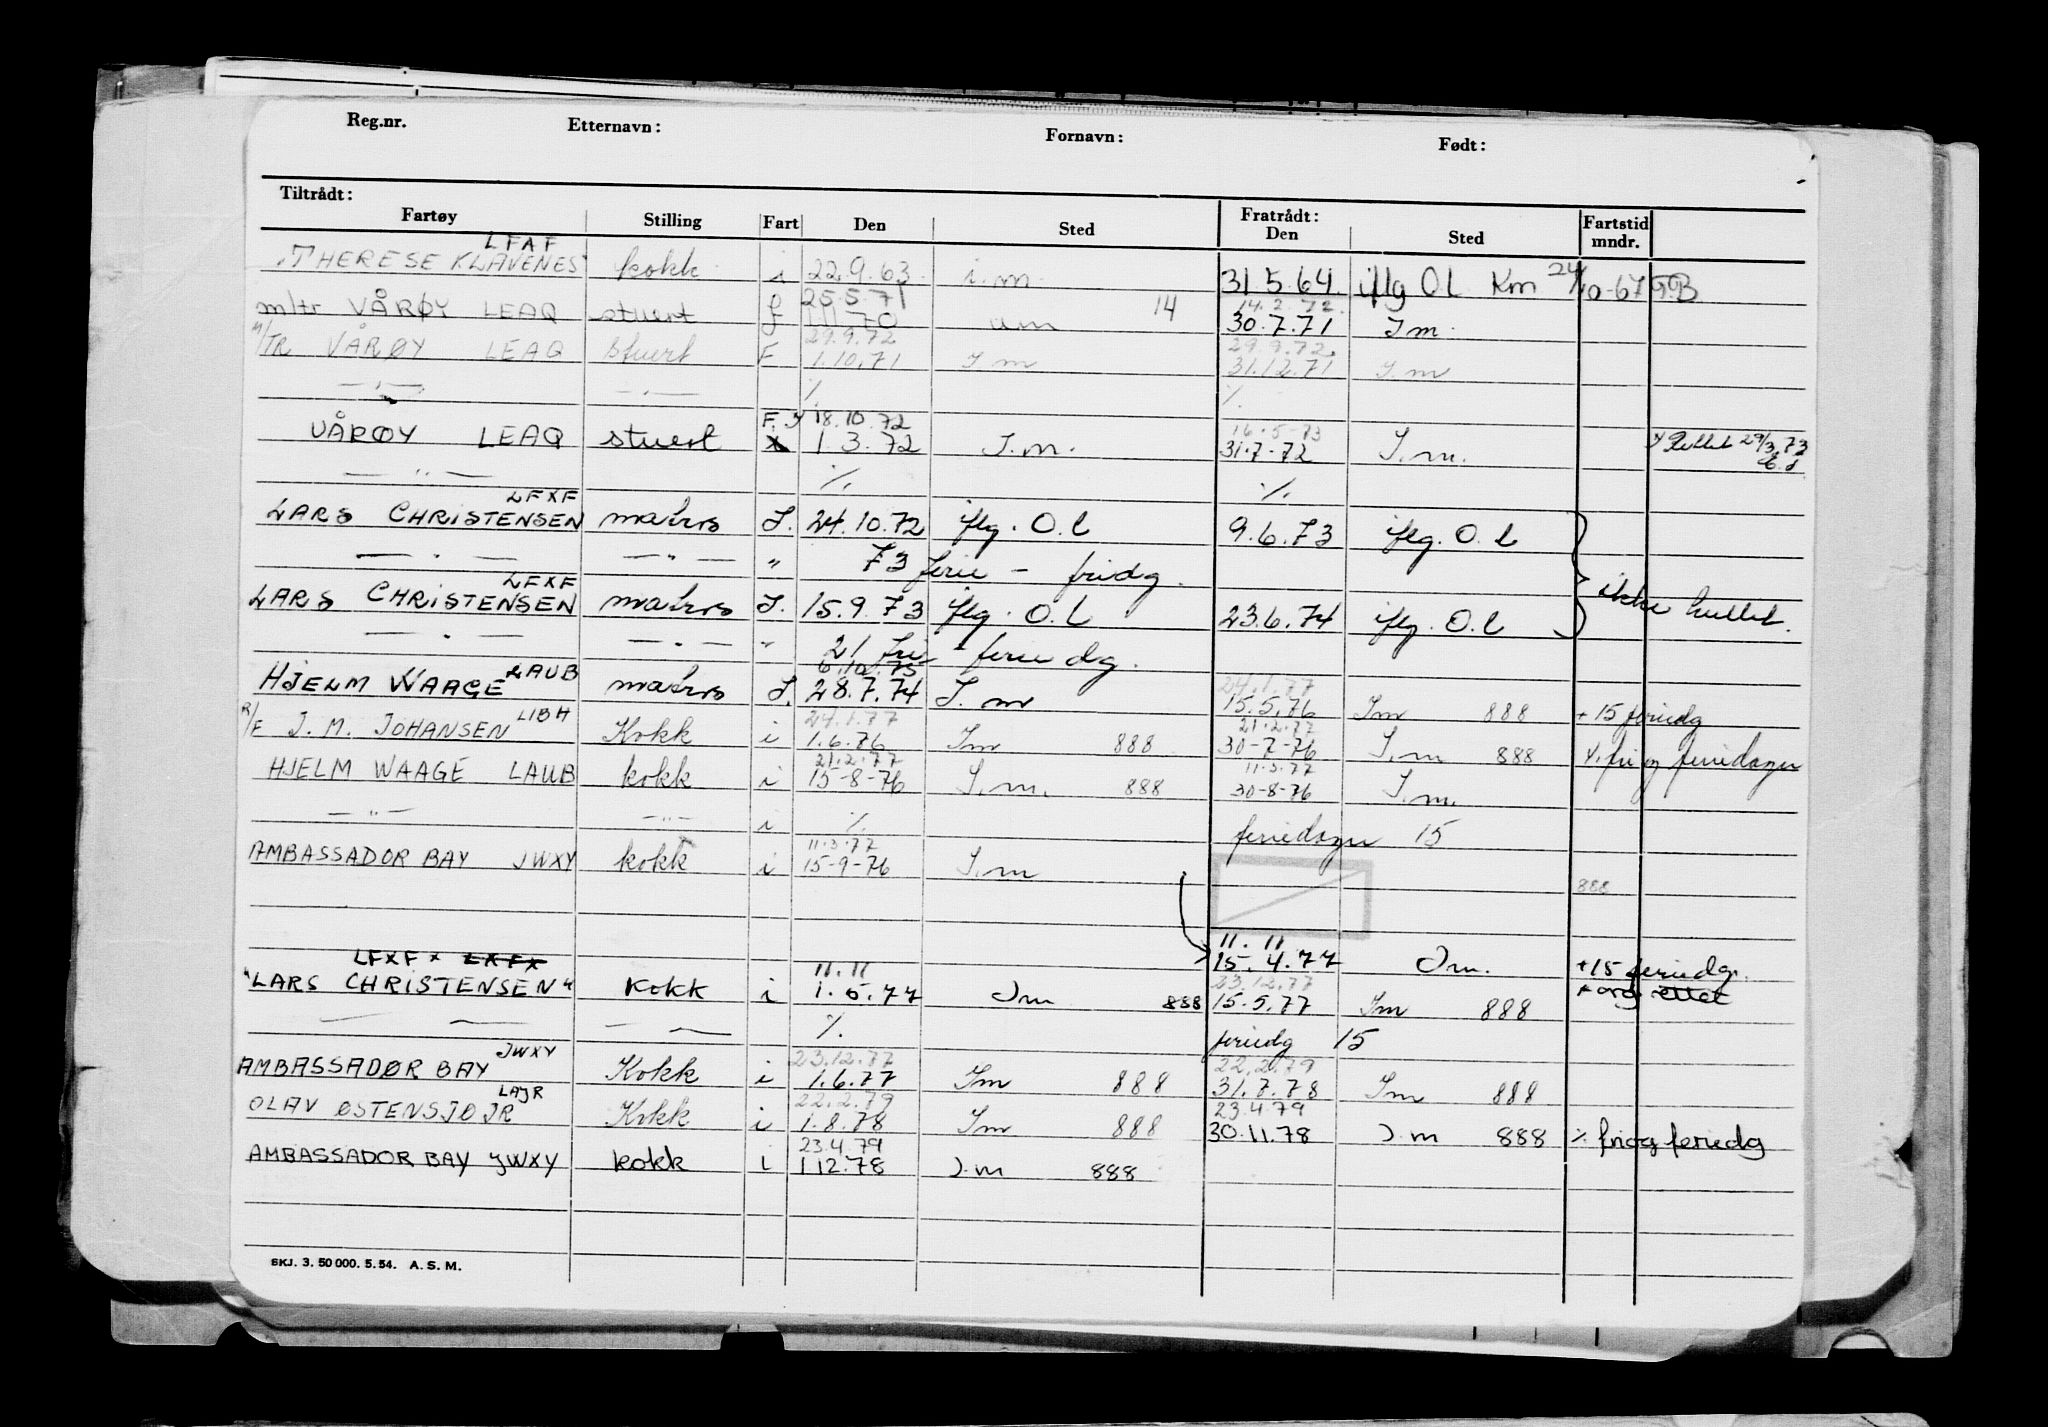 Reg.nr. Etternavn: Fornavn: Født:
Tiltrådt: Fratrådt:
Fartøy Stilling Fart Den Sted Den Sted Fartstid mndr.
LFAF
"THERESE KLAVENES" kokk i 22.9.63 i.m. 31 5.64. iflg O.L Km 24/10-67 GB
25.5.71 14 14.2.72.
m/tr VÅRØY LEAQ stuert f 1.11.70 um 30.7.71 Im.
29.9.72 29.9.72.
M/TR VÅRØY LEAQ Stuert F 1.10.71 I m 31.12.71 I.m
— " — — " — % %
F.I 18.10.72 16.5-73
VÅRØY LEAQ stuert x 1.3.72 I.m. 31.7-72 I.m. x Rettet 29/3.73
— " — % %
LFXF
LARS CHRISTENSEN matros I. 24.10.72 iflg. O.l 9.6.73 iflg. O.l
— " — — " — " 73 ferie - fridg.
LFXF
LARS CHRISTENSEN matros I. 15.9.73 iflg. O.L 23.6.74 iflg. O.l ikke hullet.
— " — — " — " 21 fri - ferie dg.
LAUB 6.10.75 24.1.77
HJELM WAAGE matros I. 28.7.74 I. m 15.5.76 Im 888 + 15 feriedg
LIBH 24.1.77 21.2.77
R/F J. M. JOHANSEN Kokk i 1.6.76 Im 888 30-7-76 I.m 888 %. fri og feriedager
21.2.77 11.3.77
HJELM WAAGE LAUB kokk i 15-8-76 I.m. 888 30-8-76 I.m.
— " — — " — i % feriedager 15
11.3.77
AMBASSADOR BAY JWXY kokk i 15-9-76 I.m
888
11.11
LFXF x LXFX 11.11 15.4.77 Im. +15 feriedg.
23.12.77
"LARS CHRISTENSEN" Kokk i 1.5.77 Im 888 15.5.77 Im 888
— — — — % feriedg 15
JWXY 23.12.77 22.2.79
AMBASSADØR BAY Kokk i 1.6.77 Im 888 31.7.78 Im 888
LAJR 22.2.79 23.4.79
OLAV ØSTENSJØ JR Kokk i 1.8.78 Im 888 30.11.78 I.m 888 % fri og feriedg
23.4.79
AMBASSADOR BAY JWXY kokk i 1 12.78 I.m 888
SKJ. 3. 50 000. 5.54. A. S. M.